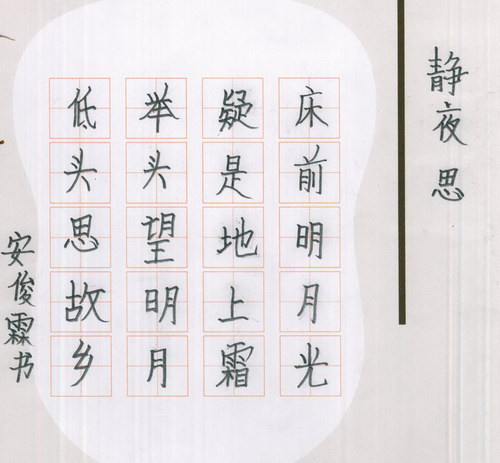 静夜思
床前明月光
疑是地上霜
举头望明月
低头思故乡
安俊霖书